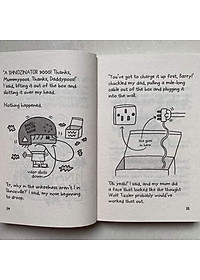 "A THNOZNATOR 9000! Thanks,
Mummypoos, Thanks, Daddypoos!"
I said, lifting it out of the box and
slotting it over my head.
Nothing happened.
visor slots
down
"Er, why in the unkeelness isn't it on
I said, my nose beginning
to droop.
24
"You've got to charge it up first, Barry!"
chuckled my dad, pulling a mile-long
cable out of the box and plugging it
into the wall.
"Oh yeah!" I said, and my mum did
a face that looked like she thought
would've
worked that out.
25